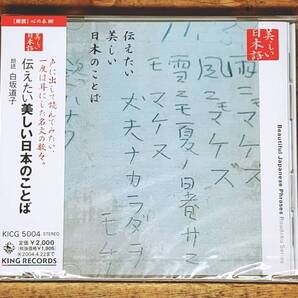 【朗読】心の本棚
美しい
日本語
声に出して読んでみたい、
一度は耳にした名文の数々。
伝えたい美しい日本のことば
朗読 白坂道子
KICG 5004 STEREO
定価 ¥2,000
(税抜価格 ¥1,905)
X2004.4.22まで
KING RECORDS
伝えたい
美しい
日本のことば
美しい
日本語
マケズ
風ニモマケズ
雪ニモ夏ノ暑サニモ
マケヌ
丈夫ナカラダヲ
モチ
Beautiful Japanese Phrases
Roudoku Series
KING RECORDS